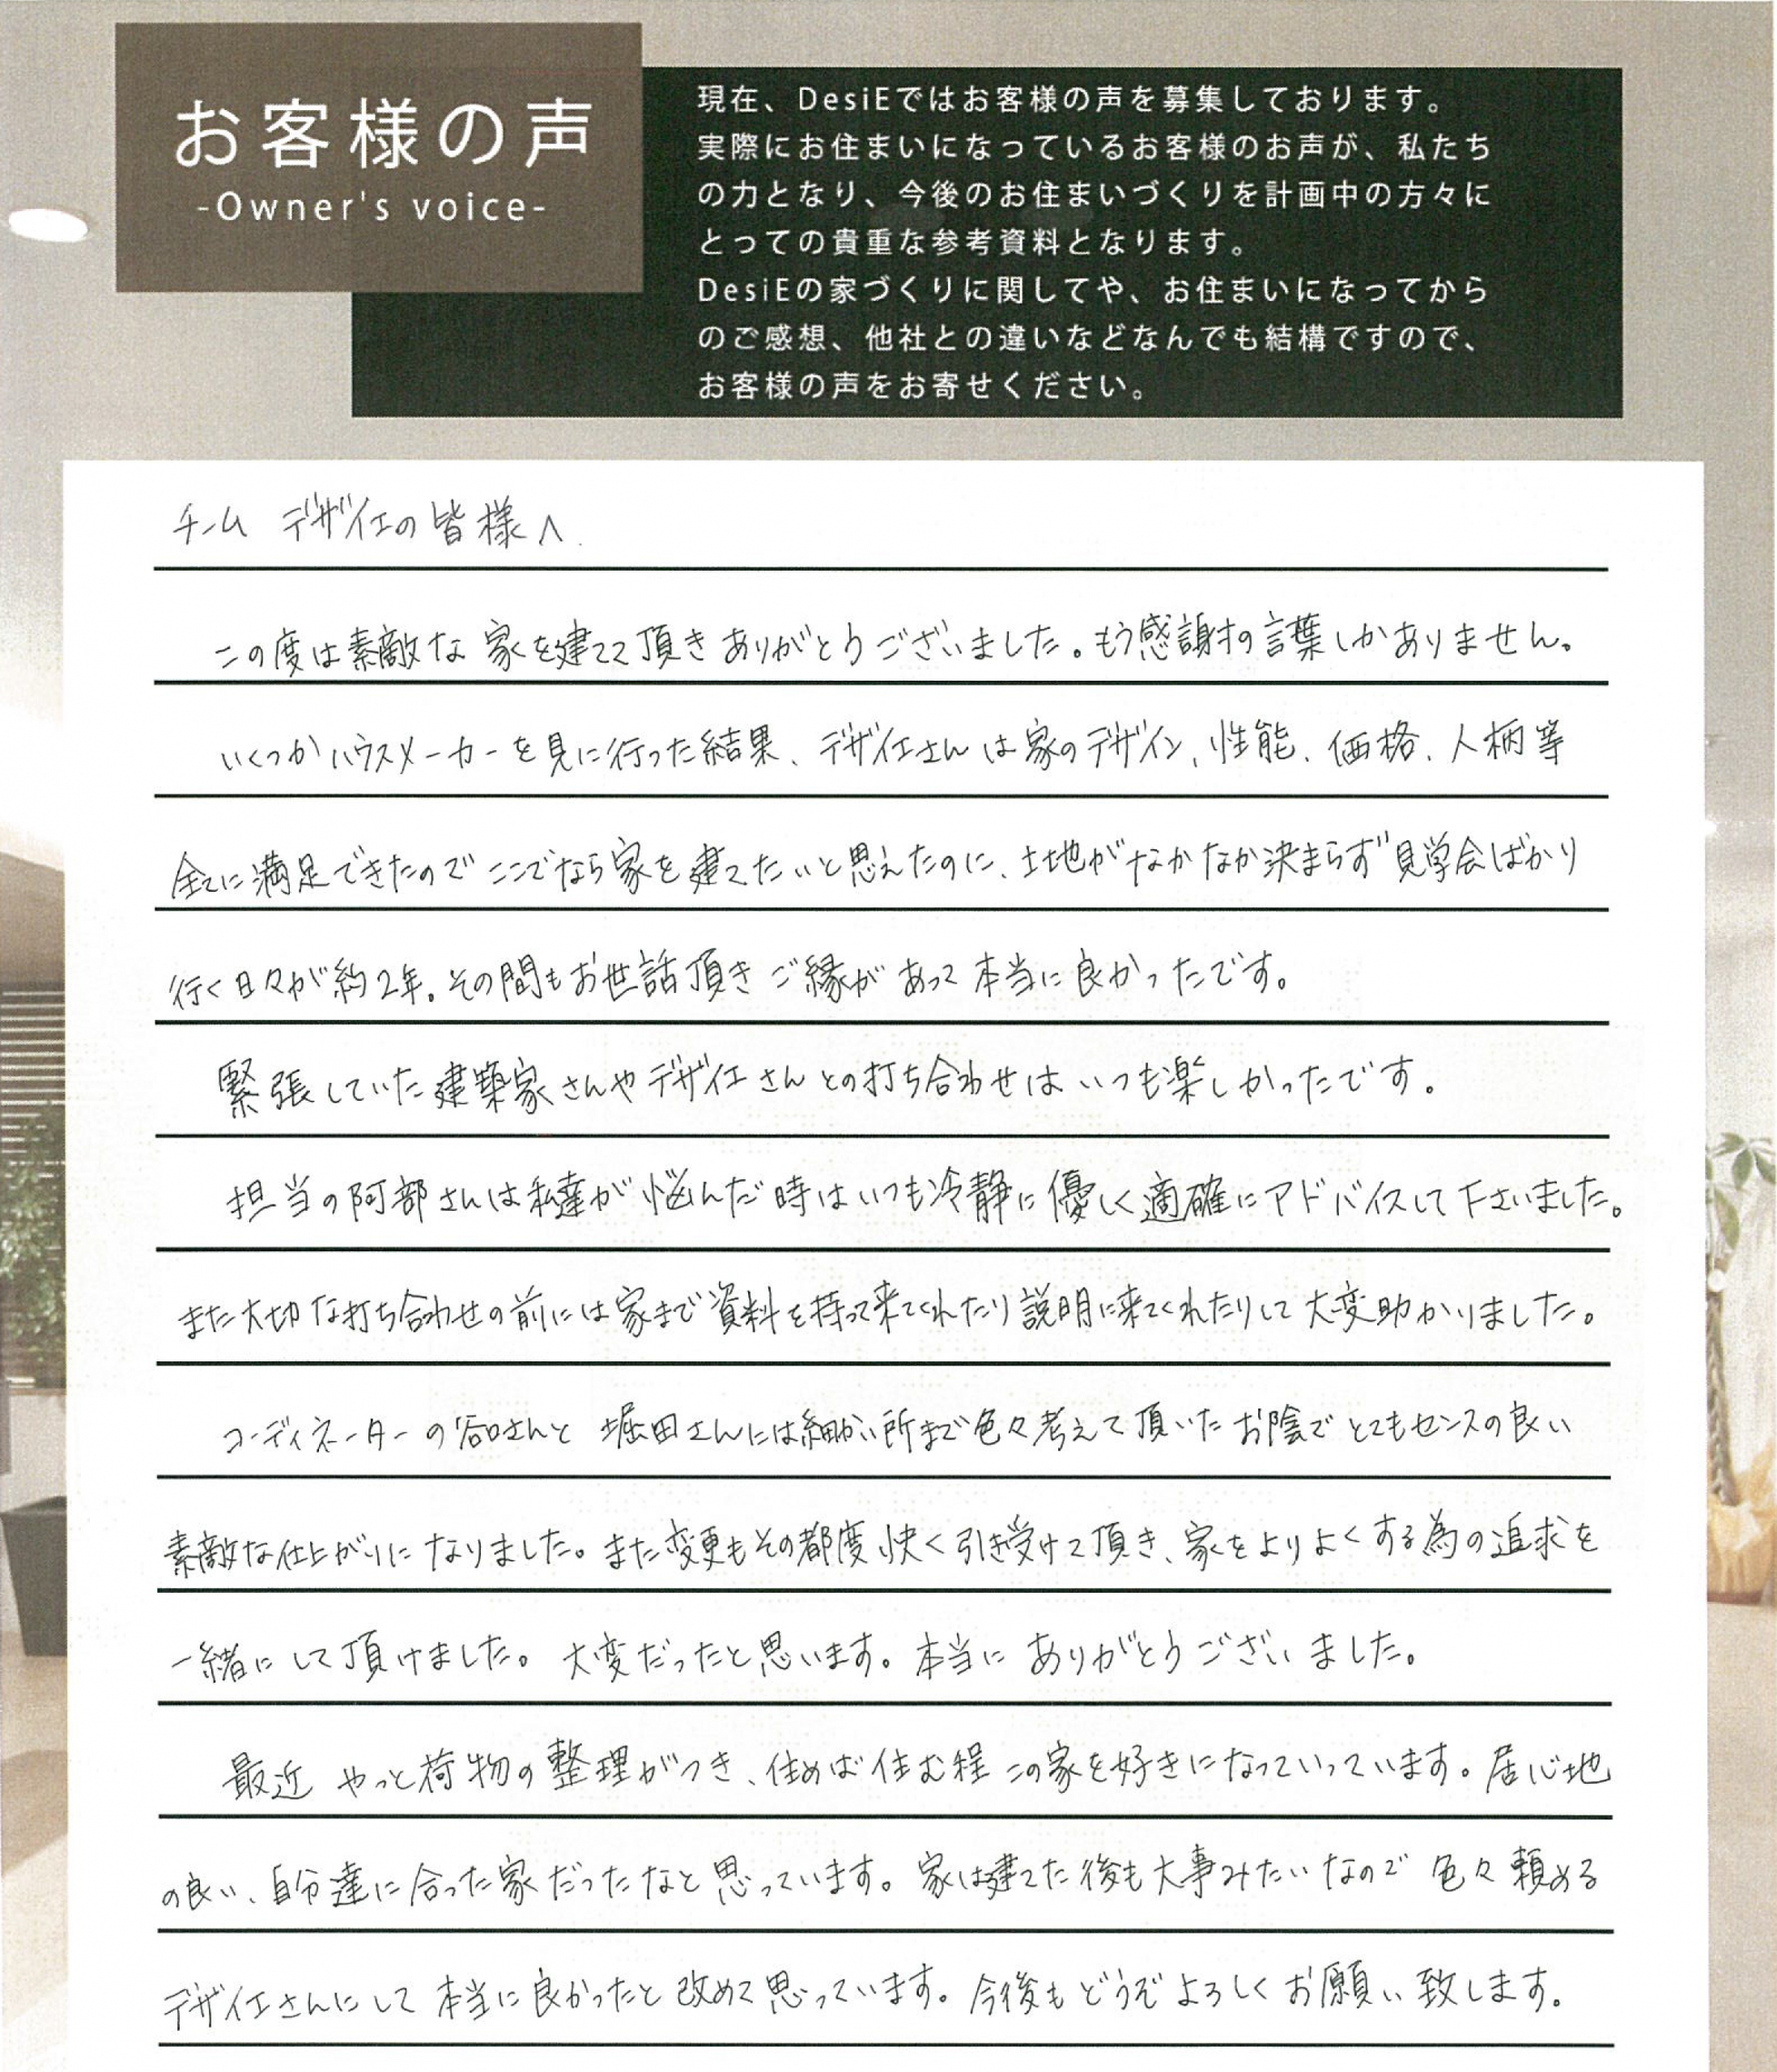 お客様の声
-Owner's voice-
現在、DesiEではお客様の声を募集しております。
実際にお住まいになっているお客様のお声が、私たち
の力となり、今後のお住まいづくりを計画中の方々に
とっての貴重な参考資料となります。
DesiEの家づくりに関してや、お住まいになってから
のご感想、他社との違いなどなんでも結構ですので、
お客様の声をお寄せください。
チーム デザイエの皆様へ
この度は素敵な家を建てて頂きありがとうございました。もう感謝の言葉しかありません。
いくつかハウスメーカーを見に行った結果、デザイエさんは家のデザイン、性能、価格、人柄等
全てに満足できたのでここでなら家を建てたいと思えたのに、土地がなかなか決まらず見学会ばかり
行く日々が約2年。その間もお世話頂きご縁があって本当に良かったです。
緊張していた建築家さんやデザイエさんとの打ち合わせはいつも楽しかったです。
担当の阿部さんは私達が悩んだ時はいつも冷静に優しく適確にアドバイスして下さいました。
また大切な打ち合わせの前には家まで資料を持って来てくれたり説明に来てくれたりして大変助かりました。
コーディネーターの谷口さんと堀田さんには細かい所まで色々考えて頂いたお陰でとてもセンスの良い
素敵な仕上がりになりました。また変更もその都度快く引き受けて頂き、家をよりよくする為の追求を
一緒にして頂けました。大変だったと思います。本当にありがとうございました。
最近やっと荷物の整理がつき、住めば住む程この家を好きになっていっています。居心地
の良い、自分達に合った家だったなと思っています。家は建てた後も大事みたいなので色々頼める
デザイエさんにして本当に良かったと改めて思っています。今後もどうぞよろしくお願い致します。